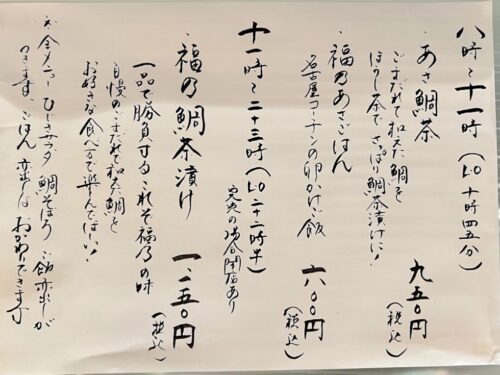 八時〜十一時(LO 十時四五分)
・あさ鯛茶 九五〇円(税込)
ごまだれで和えた鯛を
ほうじ茶で、さっぱり鯛茶漬けに!
・福乃あさごはん 六〇〇円(税込)
名古屋コーチンの卵かけご飯
十一時〜二十三時(LO 二十二時半)
完売の場合閉店あり
・福乃鯛茶漬け 一、二五〇円(税込)
一品で勝負する これぞ福乃の味
自慢のごまだれで和えた鯛を
お好きな食べ方で選んでほしい!
全メニュー ひじきサラダ 鯛そぼろ
つきます。ごはん おかわりできます